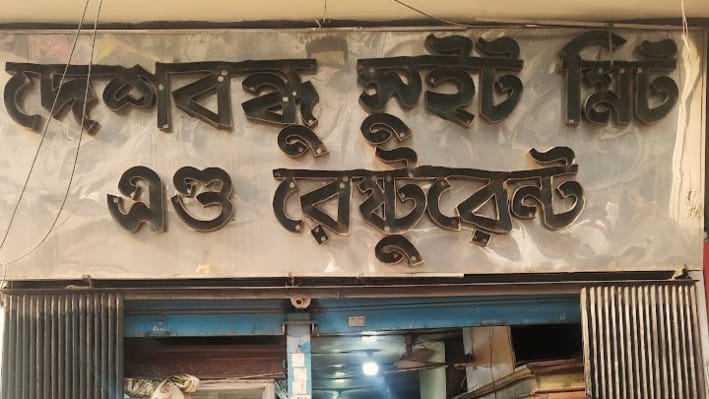 দেশবন্ধু সুইট মিট
এণ্ড রেষ্টুরেন্ট